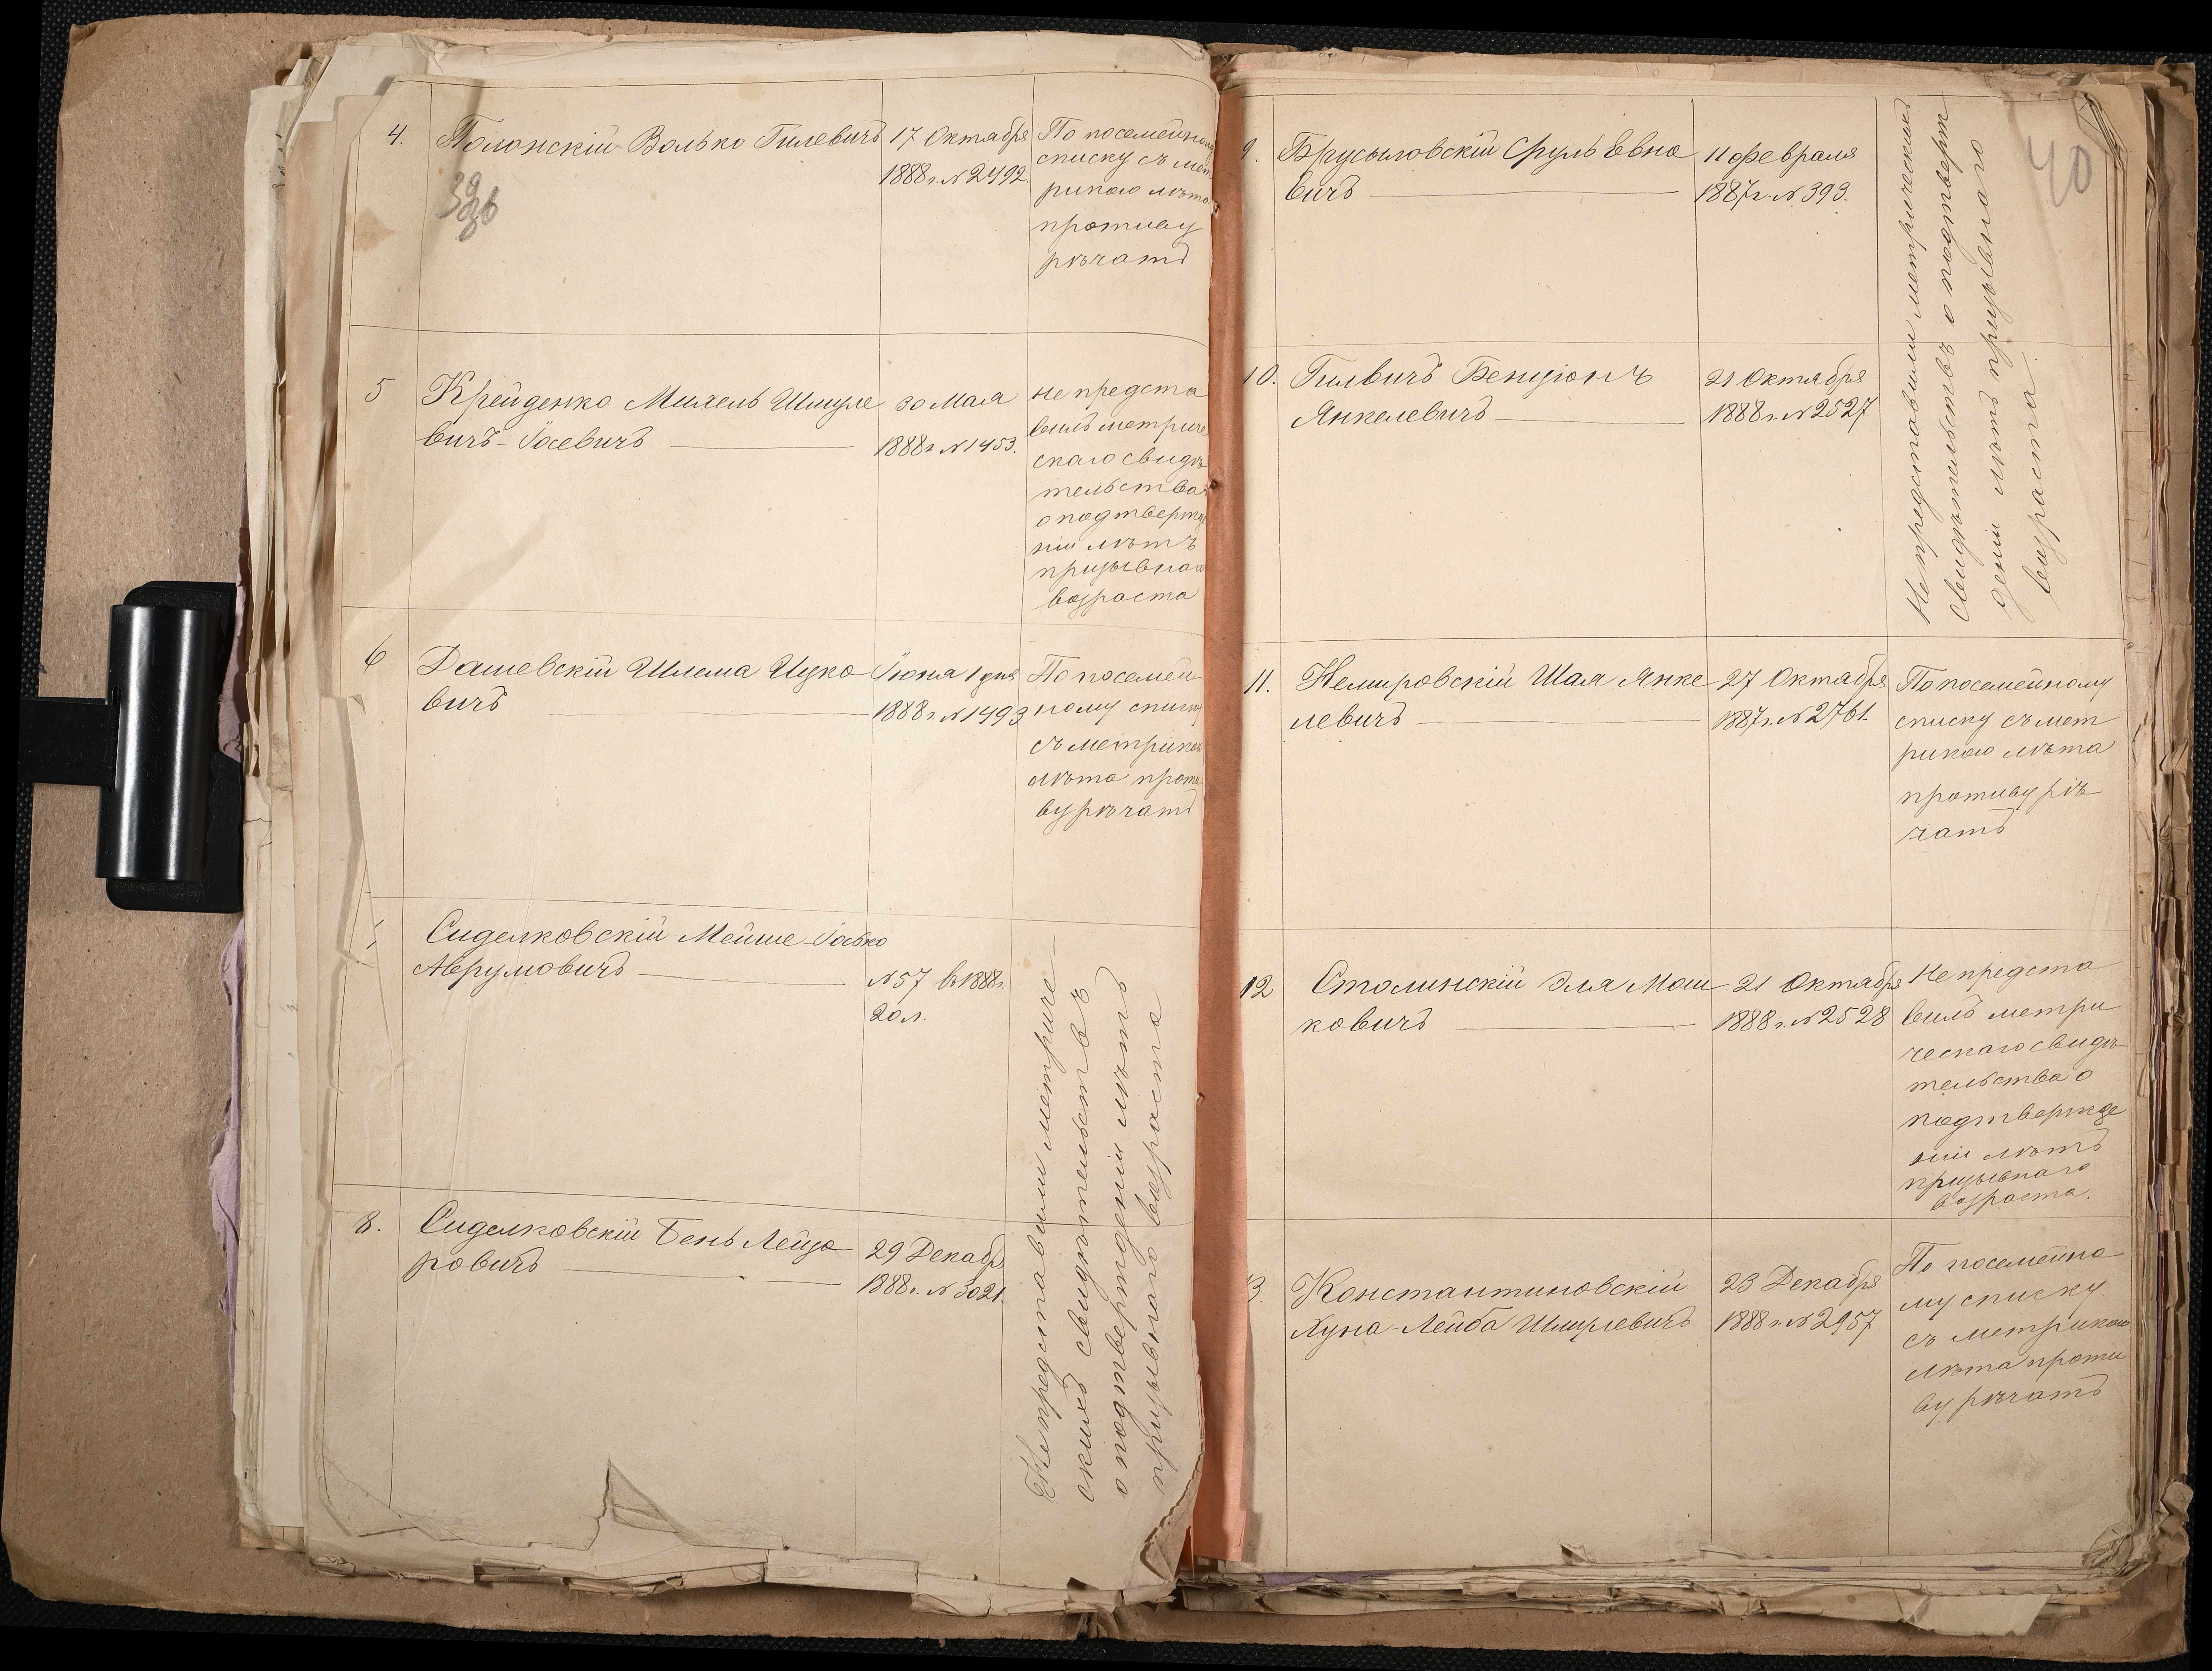 4.
Полонскій Волько Гилевичъ
17 Октября
1888 г. № 2492.
По посемейному
списку съ мет
рикою лѣта
противу
рѣчатъ
39 об
5
Крейденко Михель Шмуле
вичъ-Іосевичъ
30 Мая
1888 г. № 1453.
не предста
вилъ метриче
скаго свидѣ
тельства
о подтвержде
нiи лѣтъ
призывнаго
возраста
6
Дашевскій Шлема Ицко
вичъ
Іюня 1 дня
1888 г. № 1493
По посемей
ному списку
съ метрикою
лѣта проти
вурѣчатъ
Сиделковскій Мейше-Іосько
Аврумовичъ
№ 57 въ 1888 г.
20 л.
8.
Сиделковскій Бень Лейзо
ровичъ
29 Декабря
1888 г. № 3021.
Не представили метриче-
скихъ свидѣтельствъ
о подтвержденіи лѣтъ
призывнаго возраста
40
9.
Брусиловскій Сруль Евно
вичъ
11 февраля
1887 г. № 393.
10.
Гилвичъ Бенціонъ
Янкелевичъ
21 Октября
1888 г. № 2527
Не представили метрическихъ
свидѣтельствъ о подтверж
деніи лѣтъ призывнаго
возраста
11.
Немировскій Шая Янке
левичъ
27 Октября
1887 г. № 2761.
По посемейному
списку съ мет
рикою лѣта
противурѣ
чатъ
12
Столинскій Эля Мош
ковичъ
21 Октября
1888 г. № 2528
Не предста
вилъ метри
ческаго свидѣ
тельства о
подтвержде
ніи лѣтъ
призывнаго
возраста.
13.
Константиновскій
Хуна-Лейба Шмулевичъ
23 Декабря
1888 г. № 2957
По посемейно
му списку
съ метрикою
лѣта проти
ву рѣчатъ